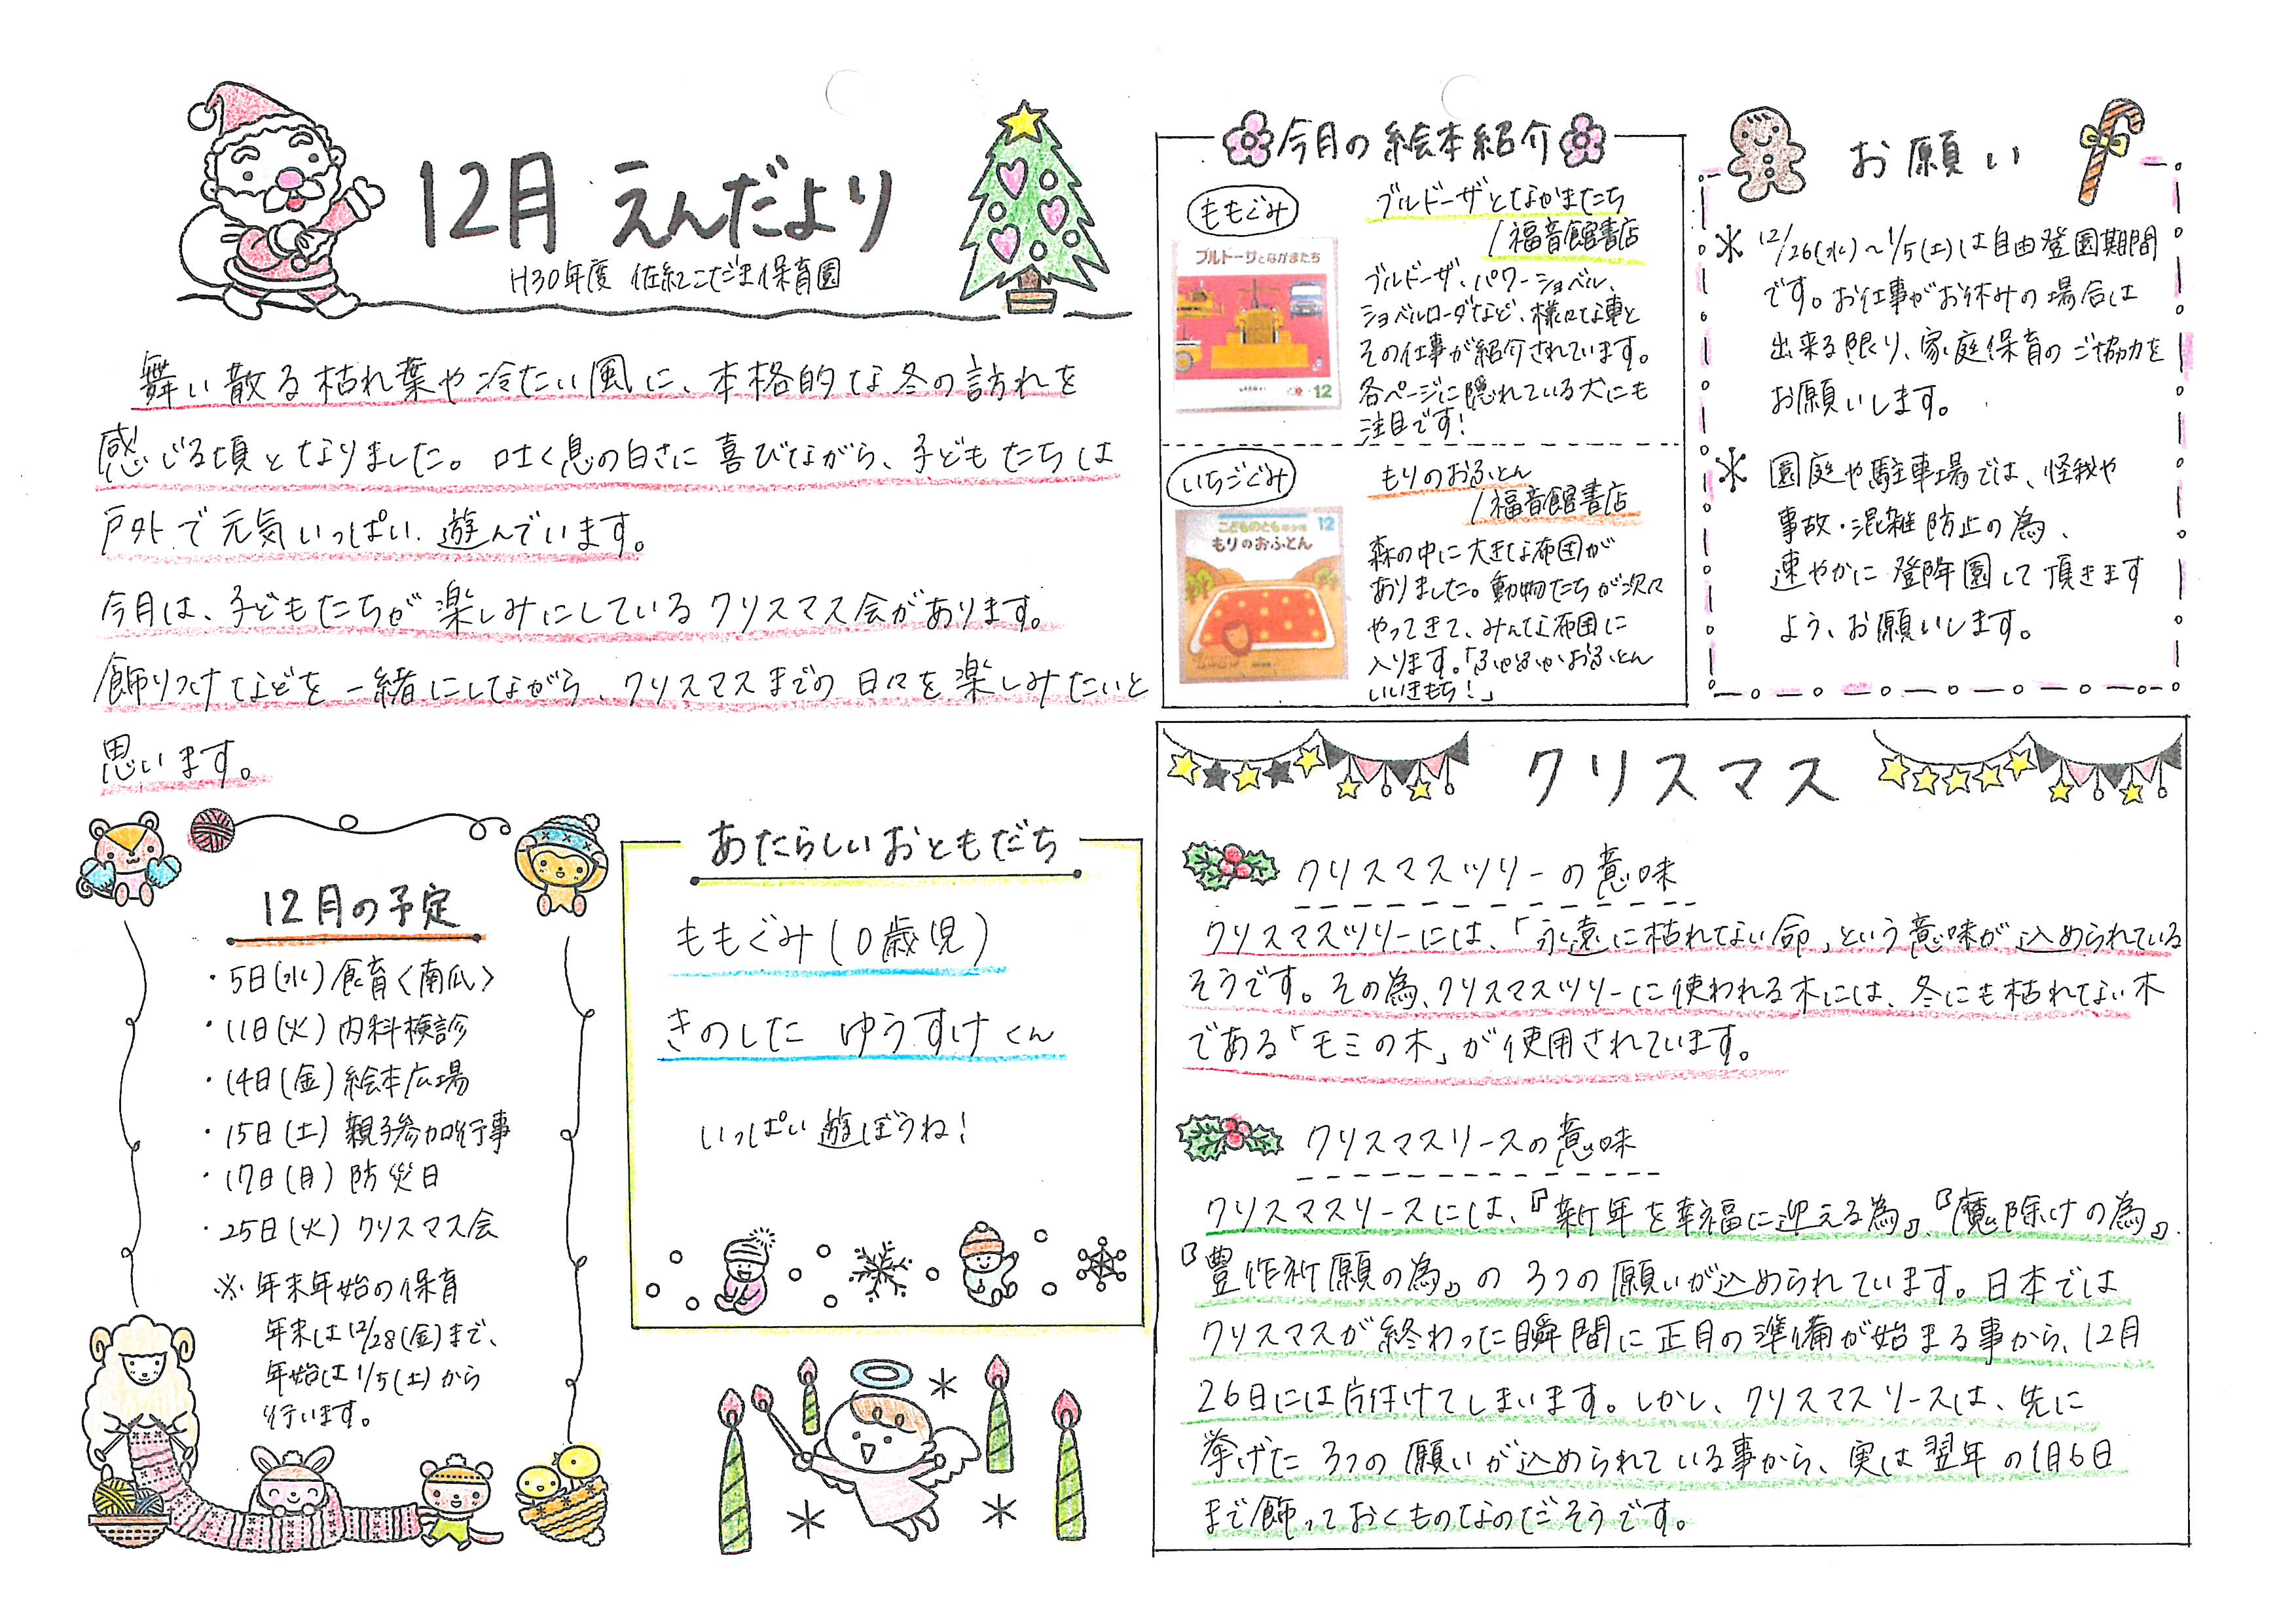 12月 えんだより
H30年度 佐紀こだま保育園
舞い散る枯れ葉や冷たい風に、本格的な冬の訪れを
感じる頃となりました。吐く息の白さに喜びながら、子どもたちは
戸外で元気いっぱい遊んでいます。
今月は、子どもたちが楽しみにしているクリスマス会があります。
飾りつけなどを一緒にしながら、クリスマスまでの日々を楽しみたいと
思います。
12月の予定
・5日(水)食育<南瓜>
・11日(火)内科検診
・14日(金)絵本広場
・15日(土)親子参加行事
・17日(月)防災日
・25日(火)クリスマス会
※年末年始の保育
年末は12/28(金)まで、
年始は1/5(土)から
行います。
あたらしいおともだち
ももぐみ(0歳児)
きのした ゆうすけくん
いっぱい遊ぼうね!
今月の絵本紹介
ももぐみ
ブルドーザとなかまたち
/福音館書店
ブルドーザとなかまたち
12
ブルドーザ、パワーショベル、
ショベルローダなど、様々な車と
その仕事が紹介されています。
各ページに隠れている犬にも
注目です!
いちごぐみ
もりのおふとん
/福音館書店
こどものとも年少版 12
もりのおふとん
森の中に大きな布団が
ありました。動物たちが次々
やってきて、みんな布団に
入ります。「ふかふかおふとん
いいきもち!」
お願い
＊12/26(水)～1/5(土)は自由登園期間
です。お仕事がお休みの場合は
出来る限り、家庭保育のご協力を
お願いします。
＊園庭や駐車場では、怪我や
事故・混雑防止の為、
速やかに登降園して頂きます
よう、お願いします。
クリスマス
クリスマスツリーの意味
クリスマスツリーには、「永遠に枯れない命」という意味が込められている
そうです。その為、クリスマスツリーに使われる木には、冬にも枯れない木
である「モミの木」が使用されています。
クリスマスリースの意味
クリスマスリースには、『新年を幸福に迎える為』、『魔除けの為』、
『豊作祈願の為』の3つの願いが込められています。日本では
クリスマスが終わった瞬間に正月の準備が始まる事から、12月
26日には片付けてしまいます。しかし、クリスマスリースは、先に
挙げた3つの願いが込められている事から、実は翌年の1月6日
まで飾っておくものなのだそうです。